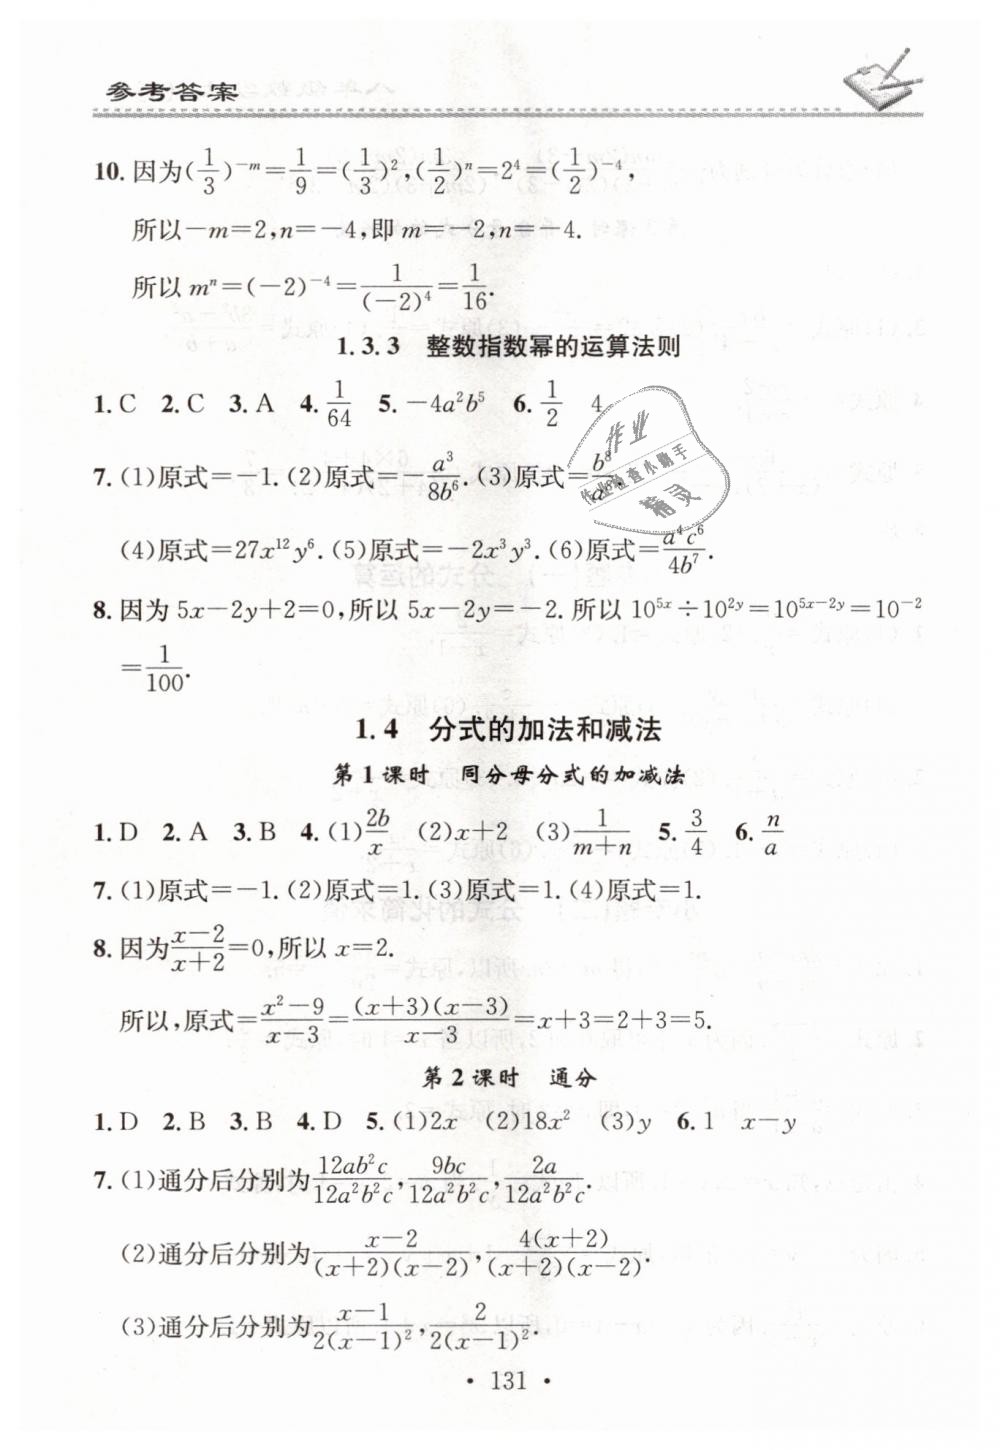 参考答案
10. 因为(1/3)^{-m}=1/9=(1/3)^2,(1/2)^n=2^4=(1/2)^{-4},
所以-m=2,n=-4,即m=-2,n=-4.
所以m^n=(-2)^{-4}=1/(-2)^4=1/16.
1.3.3 整数指数幂的运算法则
1. C 2. C 3. A 4. 1/64 5. -4a^2b^5 6. 1/2 4
7. (1)原式=-1. (2)原式=-a^3/8b^6. (3)原式=b^8/a^8.
(4)原式=27x^{12}y^6. (5)原式=-2x^3y^3. (6)原式=a^4c^6/4b^7.
作业
作业检查小助手
精灵
8. 因为5x-2y+2=0,所以5x-2y=-2. 所以10^{5x}÷10^{2y}=10^{5x-2y}=10^{-2}
=1/100.
1.4 分式的加法和减法
第1课时 同分母分式的加减法
1. D 2. A 3. B 4. (1)2b/x (2)x+2 (3)1/(m+n) 5. 3/4 6. n/a
7. (1)原式=-1. (2)原式=1. (3)原式=1. (4)原式=1.
8. 因为(x-2)/(x+2)=0,所以x=2.
所以,原式=(x^2-9)/(x-3)=(x+3)(x-3)/(x-3)=x+3=2+3=5.
第2课时 通分
1. D 2. B 3. B 4. D 5. (1)2x (2)18x^2 (3)y 6. 1 x-y
7. (1)通分后分别为12ab^2c/12a^2b^2c,9bc/12a^2b^2c,2a/12a^2b^2c.
(2)通分后分别为(x-2)/(x+2)(x-2),4(x+2)/(x+2)(x-2).
(3)通分后分别为(x-1)/2(x-1)^2,2/2(x-1)^2.
· 131 ·